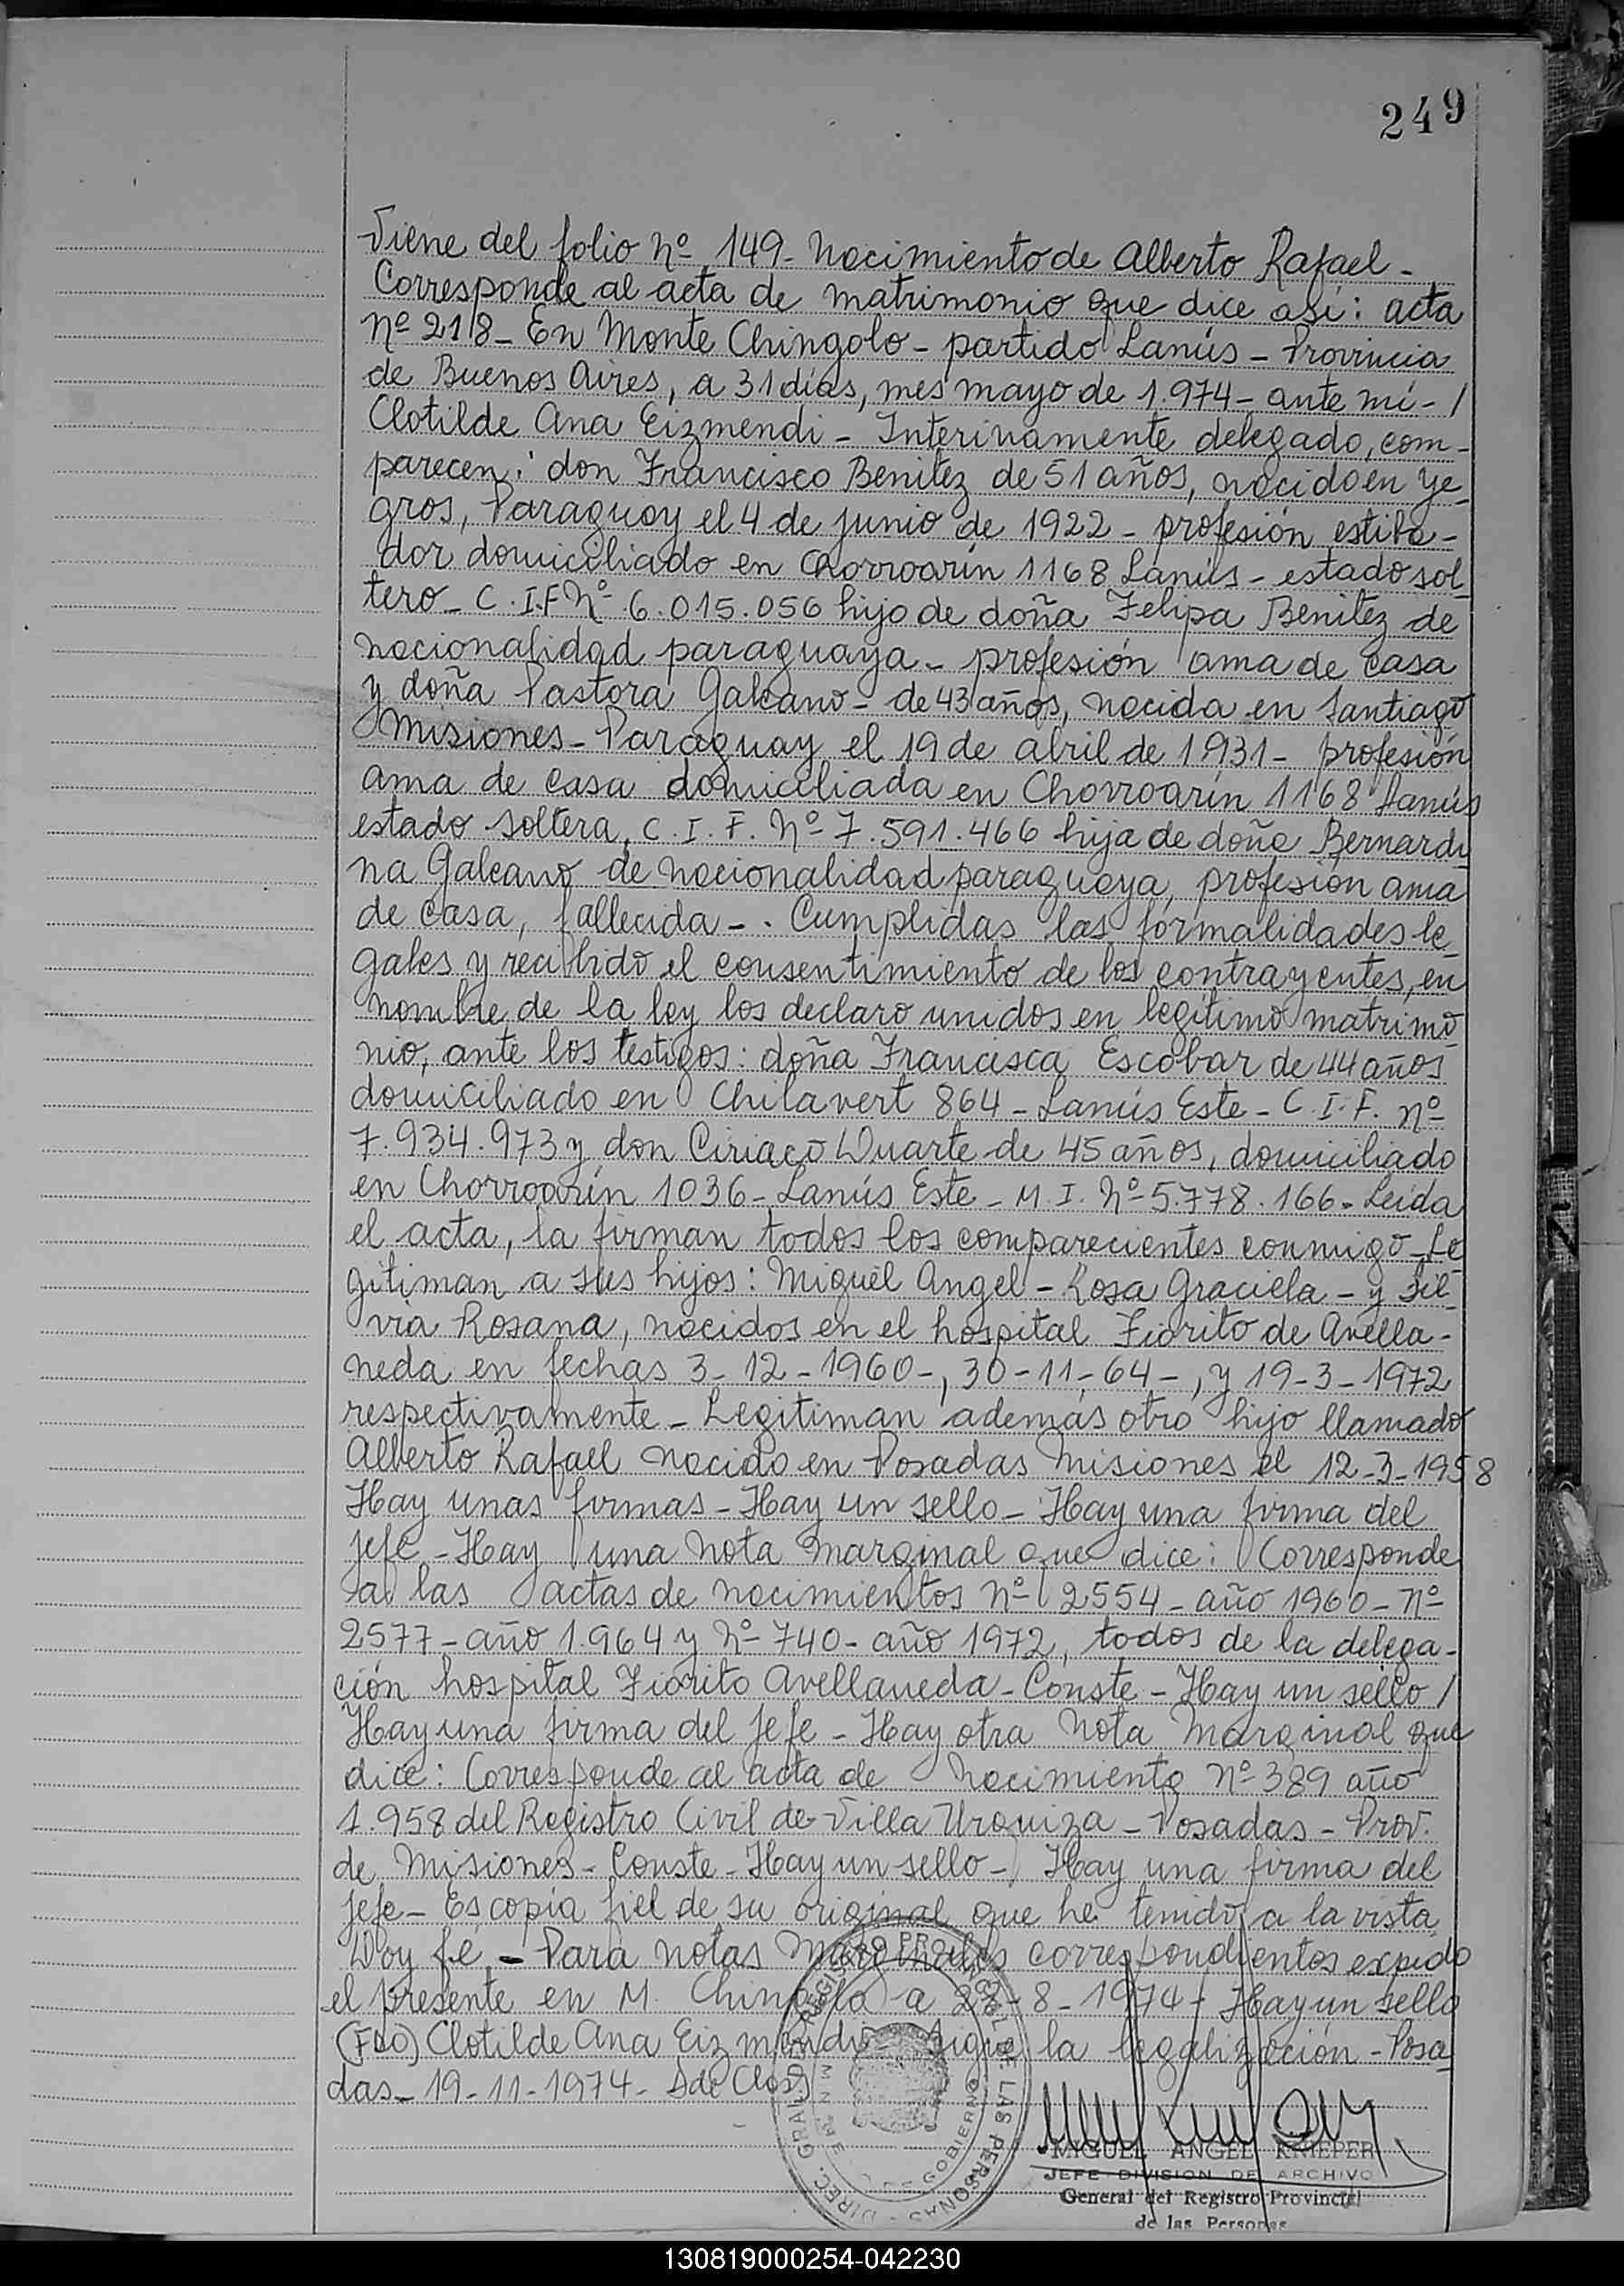 249
Viene del folio Nº 149 - Nacimiento de Alberto Rafael -
Corresponde al acta de matrimonio que dice así: acta
Nº 218 - En Monte Chingolo - partido Lanús - Provincia
de Buenos Aires, a 31 días, mes mayo de 1.974 - ante mí - /
Clotilde Ana Eizmendi - Interinamente delegado, com-
parecen: don Francisco Benitez de 51 años, nacido en Ye-
gros, Paraguay el 4 de junio de 1922 - profesión estiba-
dor domiciliado en Chorroarín 1168 Lanús - estado sol
tero - C.I.F Nº 6.015.056 hijo de doña Felipa Benitez de
nacionalidad paraguaya - profesión ama de casa
y doña Pastora Galeano - de 43 años, nacida en Santiago
Misiones - Paraguay el 19 de abril de 1931 - profesión
ama de casa domiciliada en Chorroarín 1168 Lanús
estado soltera, C.I.F. Nº 7.591.466 hija de doña Bernardi
na Galeano de nacionalidad paraguaya, profesión ama
de casa, fallecida - . Cumplidas las formalidades le
gales y recibido el consentimiento de los contrayentes, en
nombre de la ley los declaro unidos en legítimo matrimo
nio, ante los testigos: doña Francisca Escobar de 44 años
domiciliado en Chilavert 864 - Lanús Este - C.I.F. Nº
7.934.973 y don Ciriaco Duarte de 45 años, domiciliado
en Chorroarín 1036 - Lanús Este - M.I. Nº 5.778.166 - Leída
el acta, la firman todos los comparecientes conmigo - Le
gitiman a sus hijos: Miguel Angel - Rosa Graciela - y Sil
via Rosana, nacidos en el hospital Fiorito de Avella-
neda en fechas 3 - 12 - 1960 -, 30 - 11 - 64 -, y 19 - 3 - 1972
respectivamente - Legitiman además otro hijo llamado
Alberto Rafael nacido en Posadas Misiones el 12 - 3 - 1958
Hay unas firmas - Hay un sello - Hay una firma del
jefe - Hay una nota marginal que dice: Corresponde
a las actas de nacimientos Nº 2554 - año 1960 - Nº
2577 - año 1.964 y Nº 740 - año 1972, todos de la delega-
ción hospital Fiorito Avellaneda - Conste - Hay un sello /
Hay una firma del jefe - Hay otra nota marginal que
dice: Corresponde al acta de nacimiento Nº 389 año
1.958 del Registro Civil de Villa Urquiza - Posadas - Prov.
de Misiones - Conste - Hay un sello - Hay una firma del
jefe - Es copia fiel de su original que he tenido a la vista
Doy fé - Para notas marginales correspondientes expido
el presente en M. Chingolo a 28 - 8 - 1974 - Hay un sello
(FDO) Clotilde Ana Eizmendi - Sigue la legalización - Posa
das - 19 - 11 - 1974 -
MIGUEL ANGEL KNIEPER
JEFE DIVISION DE ARCHIVO
General del Registro Provincial
de las Personas
130819000254-042230